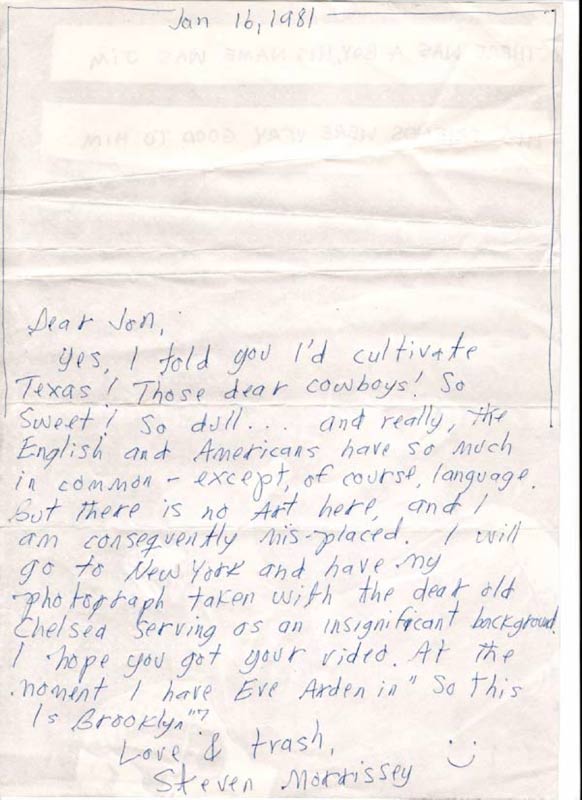 Jan 16, 1981
THERE WAS A BOY, HIS NAME WAS JIM
FRIENDS WERE VERY GOOD TO HIM
Dear Jon,
Yes, I told you I'd cultivate
Texas! Those dear cowboys! So
Sweet! So dull... and really, the
English and Americans have so much
in common - except, of course, language.
But there is no Art here, and I
am consequently mis-placed. I will
go to New York and have my
photograph taken with the dear old
Chelsea serving as an insignificant background.
I hope you got your video. At the
moment I have Eve Arden in "So This
Is Brooklyn"?
Love & trash,
Steven Morrissey